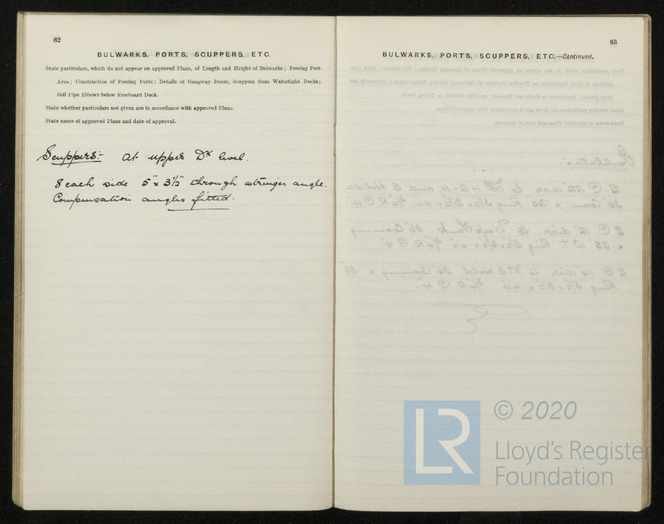 62
BULWARKS, PORTS, SCUPPERS, ETC.
State particulars, which do not appear on approved Plans, of Length and Height of Bulwarks; Freeing Port
Area; Construction of Freeing Ports; Details of Gangway Doors, Scuppers from Watertight Decks;
Soil Pipe Elbows below Freeboard Deck.
State whether particulars not given are in accordance with approved Plans.
State name of approved Plans and date of approval.
Scuppers:- At upper Dk level.
8 each side 5" x 3½" through stringer angle.
Compensation angles fitted.
63
BULWARKS, PORTS, SCUPPERS, ETC.—Continued.
LR
© 2020
Lloyd's Register
Foundation